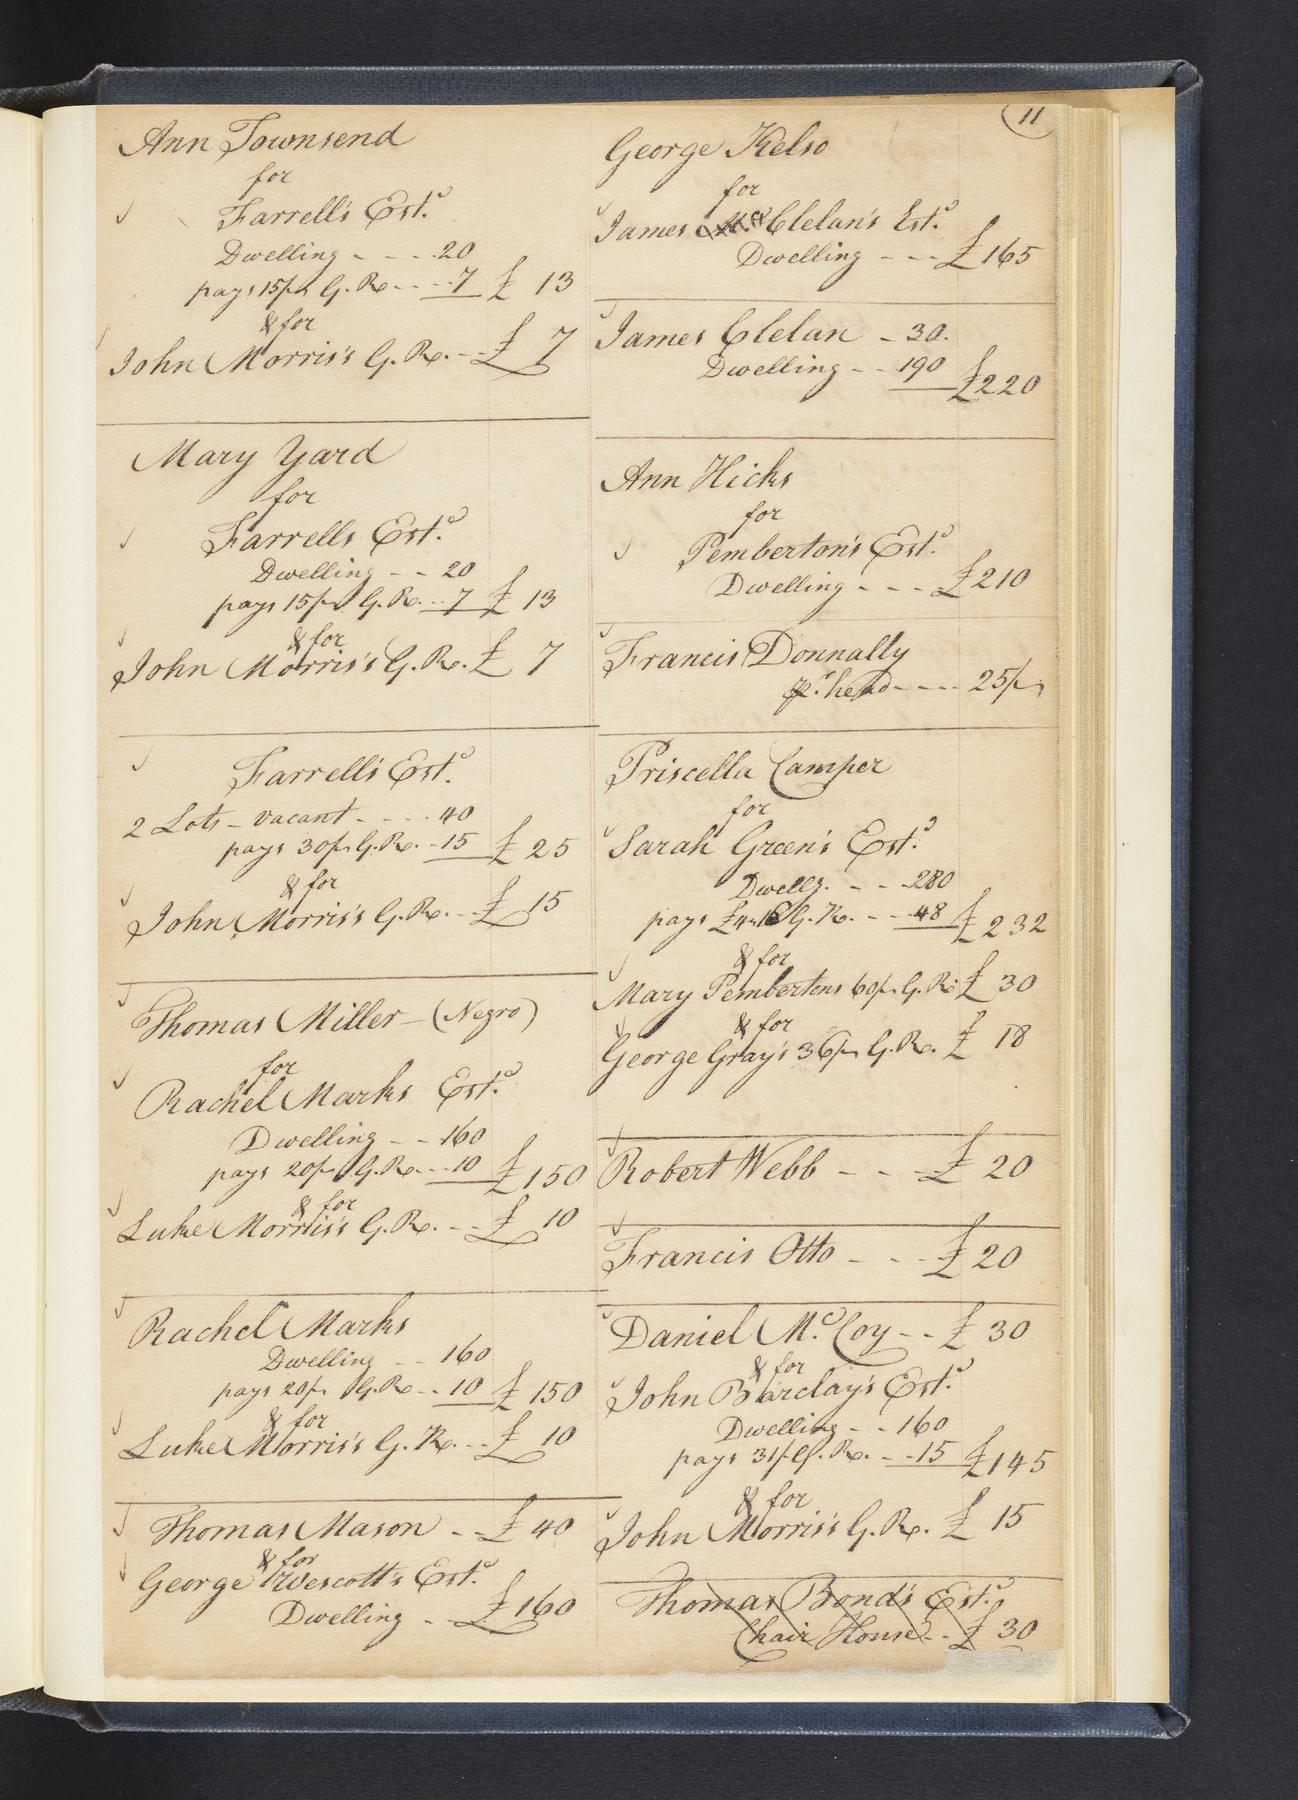 11
Ann Townsend
for
Farrell's Estd.
Dwelling - - - 20
pays 15/ps G. Rt. - - - 7 £ 13
& for
John Morris's G. Rt. - - £ 7
Mary Yard
for
Farrells Estd.
Dwelling - - 20
pays 15/ps G. Rt. - - 7 £ 13
& for
John Morris's G. Rt. £ 7
Farrell's Estd.
2 Lots - vacant - - - - 40
pays 30/ps G. Rt. - 15 £ 25
& for
John Morris's G. Rt. - - £ 15
Thomas Miller - (Negro)
for
Rachel Marks Estd.
Dwelling - - 160
pays 20/ps G. Rt. - - 10 £ 150
& for
Luke Morris's G. Rt. - - £ 10
Rachel Marks
Dwelling - - 160
pays 20/ps G. Rt. - - 10 £ 150
& for
Luke Morris's G. Rt. - - £ 10
Thomas Mason - - £ 40
& for
George Wescott's Estd.
Dwelling - £ 160
George Kelso
for
James Clelan's Estd.
Dwelling - - - £ 165
James Clelan - 30.
Dwelling - - 190
£ 220
Ann Hicks
for
Pemberton's Estd.
Dwelling - - - £ 210
Francis Donnally
pr. head - - - - 25/ps
Priscella Camper
for
Sarah Green's Estd.
Dwellg. - - - 280
pays £4"16 G. Rt. - - - 48 £ 232
& for
Mary Pembertons 60/ps G. Rt. £ 30
& for
George Gray's 36/ps G. Rt. £ 18
Robert Webb - - - £ 20
Francis Otto - - - £ 20
Daniel Mc.Coy - - £ 30
& for
John Barclay's Estd.
Dwelling - - 160
pays 31/ps G. Rt. - - 15 £ 145
& for
John Morris's G. Rt. £ 15
Thomas Bond's Estd.
Chair House - - £ 30